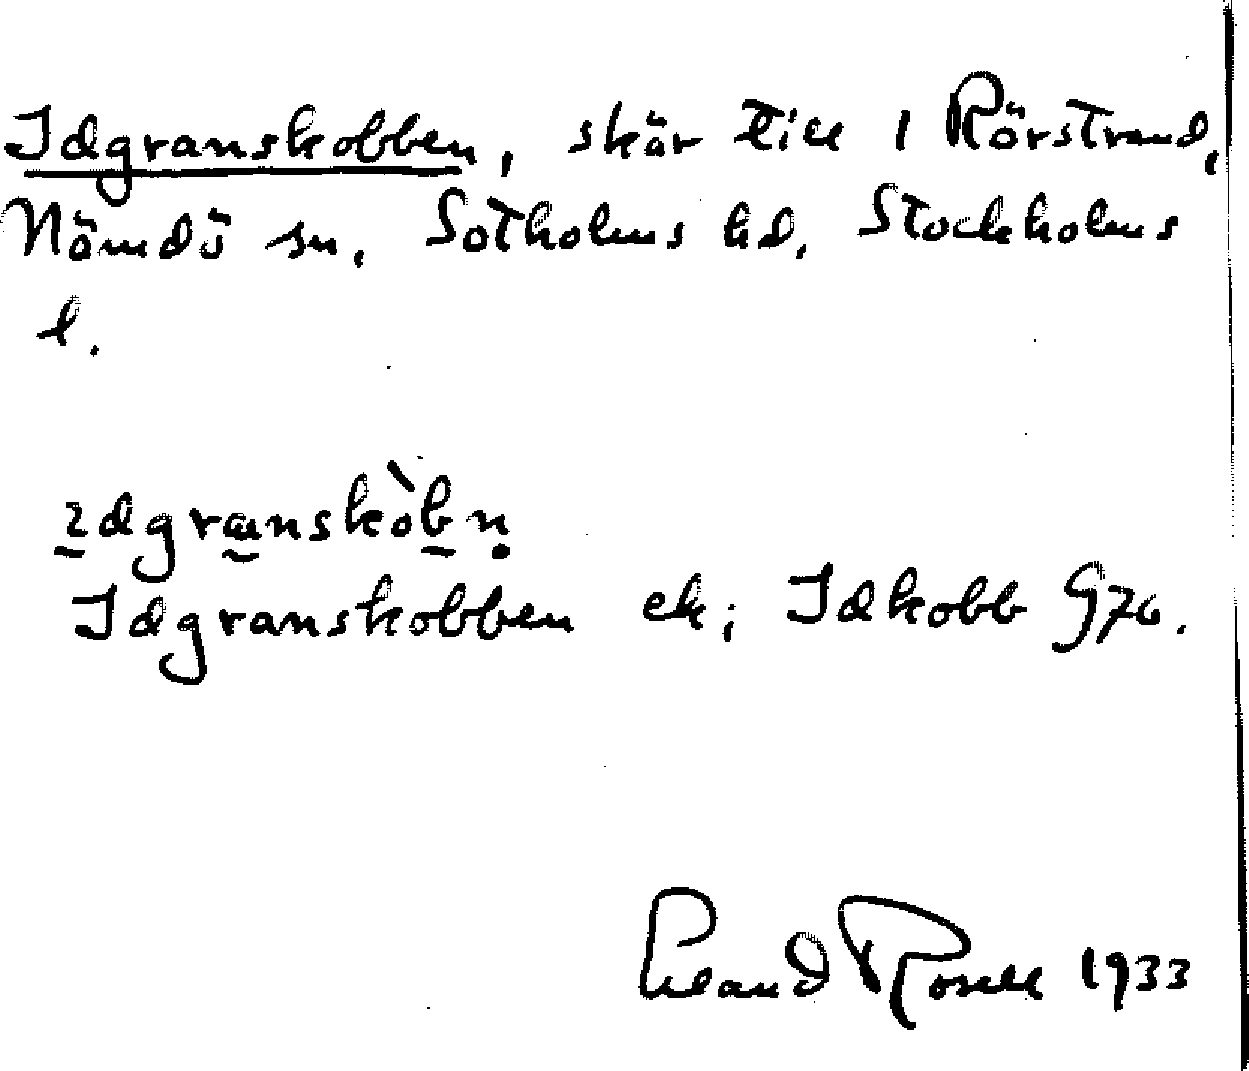 Idgranskobben, skär till 1 Rörstrand,
Nämdö sn, Sotholms hd, Stockholms
l.
ıdgranskòbn̥
Idgranskobben ek; Idkobb G76.
Erland Rosell 1933